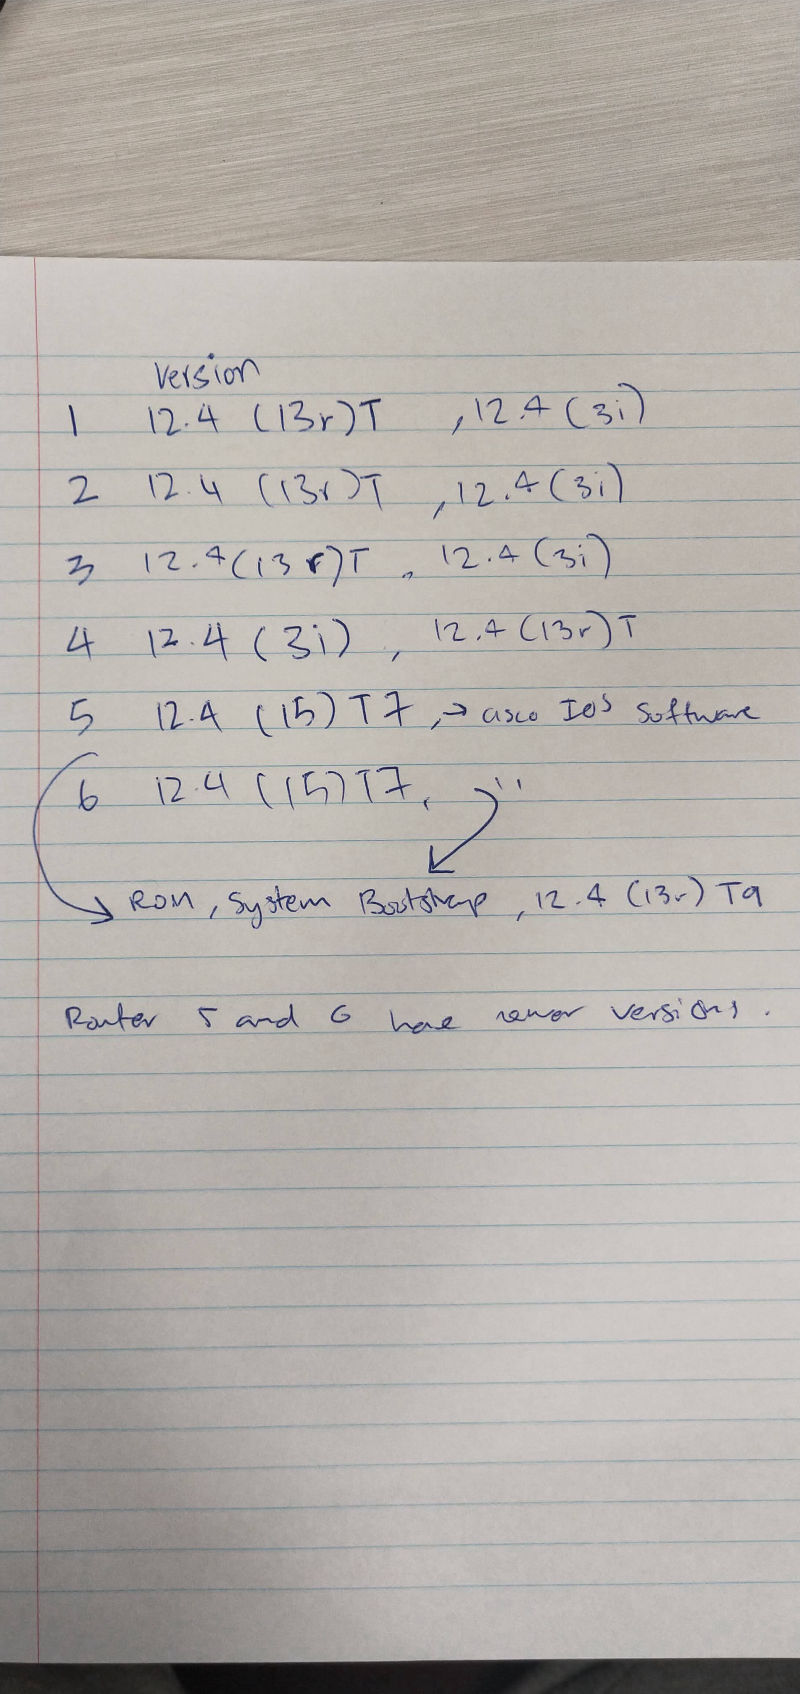 Version
1 12.4 (13r)T , 12.4 (3i)
2 12.4 (13r)T , 12.4 (3i)
3 12.4 (13r)T , 12.4 (3i)
4 12.4 (3i) , 12.4 (13r)T
5 12.4 (15) T7, → cisco IOS Software
6 12.4 (15) T7, ''
ROM, System Bootstrap, 12.4 (13r) T9
Router 5 and 6 have newer versions.